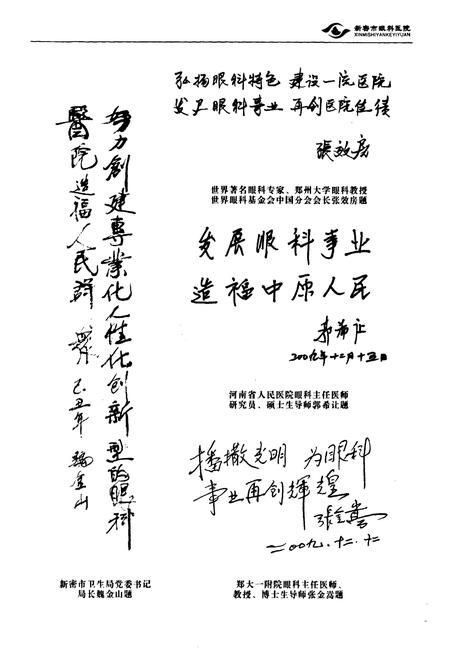 新密市眼科医院
XINMISHIYANKEYIYUAN
弘扬眼科特色 建设一流医院
发展眼科事业 再创医院佳绩
張效房
世界著名眼科专家、郑州大学眼科教授
世界眼科基金会中国分会会长张效房题
发展眼科事业
造福中原人民
郭希让
二00九年十二月十五日
河南省人民医院眼科主任医师
研究员、硕士生导师郭希让题
播撒光明 为眼科
事业再创辉煌
张金嵩
二00九.十二.十二
郑大一附院眼科主任医师、
教授、博士生导师张金嵩题
努力創建專業化人性化创新型的眼科
醫院造福人民群眾 己丑年 魏金山
新密市卫生局党委书记
局长魏金山题